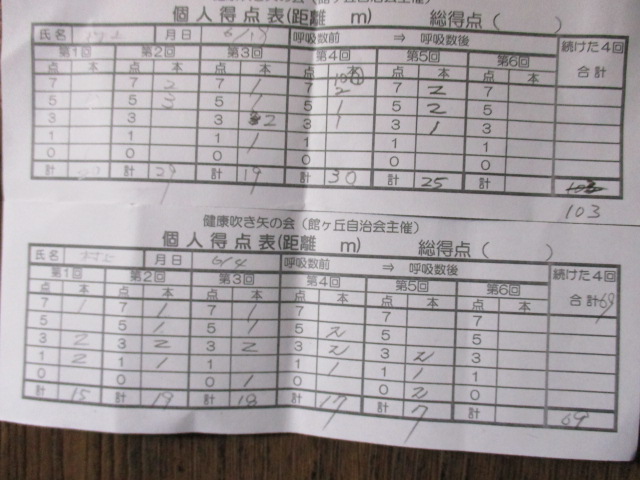 健康吹き矢の会（館ヶ丘自治会主催）
個人得点表(距離 m) 総得点( )
氏名 村上 月日 6/ 呼吸数前 ⇒ 呼吸数後 続けた4回
第1回 第2回 第3回 第4回 第5回 第6回 合計
点 本 点 本 点 本 点 本 点 本 点 本
7 7 2 7 1 7 2 7 2 7
5 5 3 5 1 5 1 5 2 5
3 3 3 2 3 1 3 1 3
1 1 1 1 1 1 1
0 0 0 0 0 0
計 計 29 計 19 計 30 計 25 計
103
健康吹き矢の会（館ヶ丘自治会主催）
個人得点表(距離 m) 総得点( )
氏名 村上 月日 6/4 呼吸数前 ⇒ 呼吸数後 続けた4回
第1回 第2回 第3回 第4回 第5回 第6回 合計 69
点 本 点 本 点 本 点 本 点 本 点 本
7 1 7 1 7 1 7 7 7
5 5 1 5 1 5 2 5 5
3 2 3 2 3 2 3 2 3 2 3
1 2 1 1 1 1 1 1 1 1
0 0 0 1 0 0 2 0
計 15 計 19 計 18 計 17 計 7 計 69